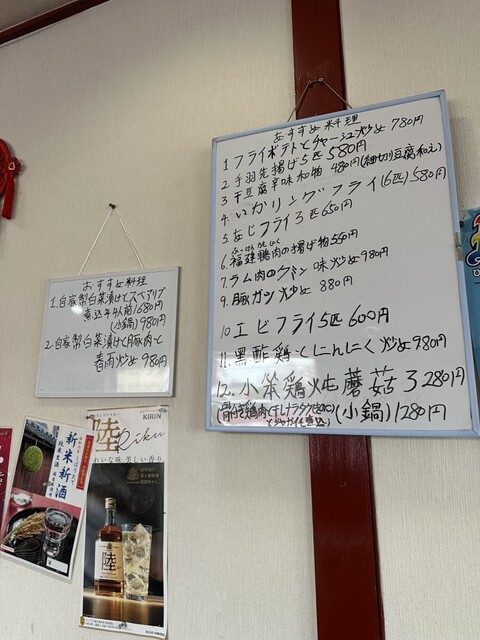 おすすめ料理
1.自家製白菜漬けとスペアリブ
煮込み 1680円
(小鍋) 980円
2.自家製白菜漬けと豚肉と
春雨炒め 980円
おすすめ料理
1 フライポテトとチャーシュー炒め 780円
2.手羽先揚げ5匹 580円
3.干豆腐辛味和物 480円(細切り豆腐和え)
4.いかリングフライ(6匹)580円
5.あじフライ3匹 650円
6.福建鶏肉の揚げ物 550円
7.ラム肉のクミン味炒め 980円
9.豚ガツ炒め 880円
10 エビフライ5匹 600円
11.黒酢鶏とにんにく炒め 980円
12.小笨鶏炖蘑菇 3280円
(小鍋)1280円
KIRIN
陸
Riku
新米新酒
陸